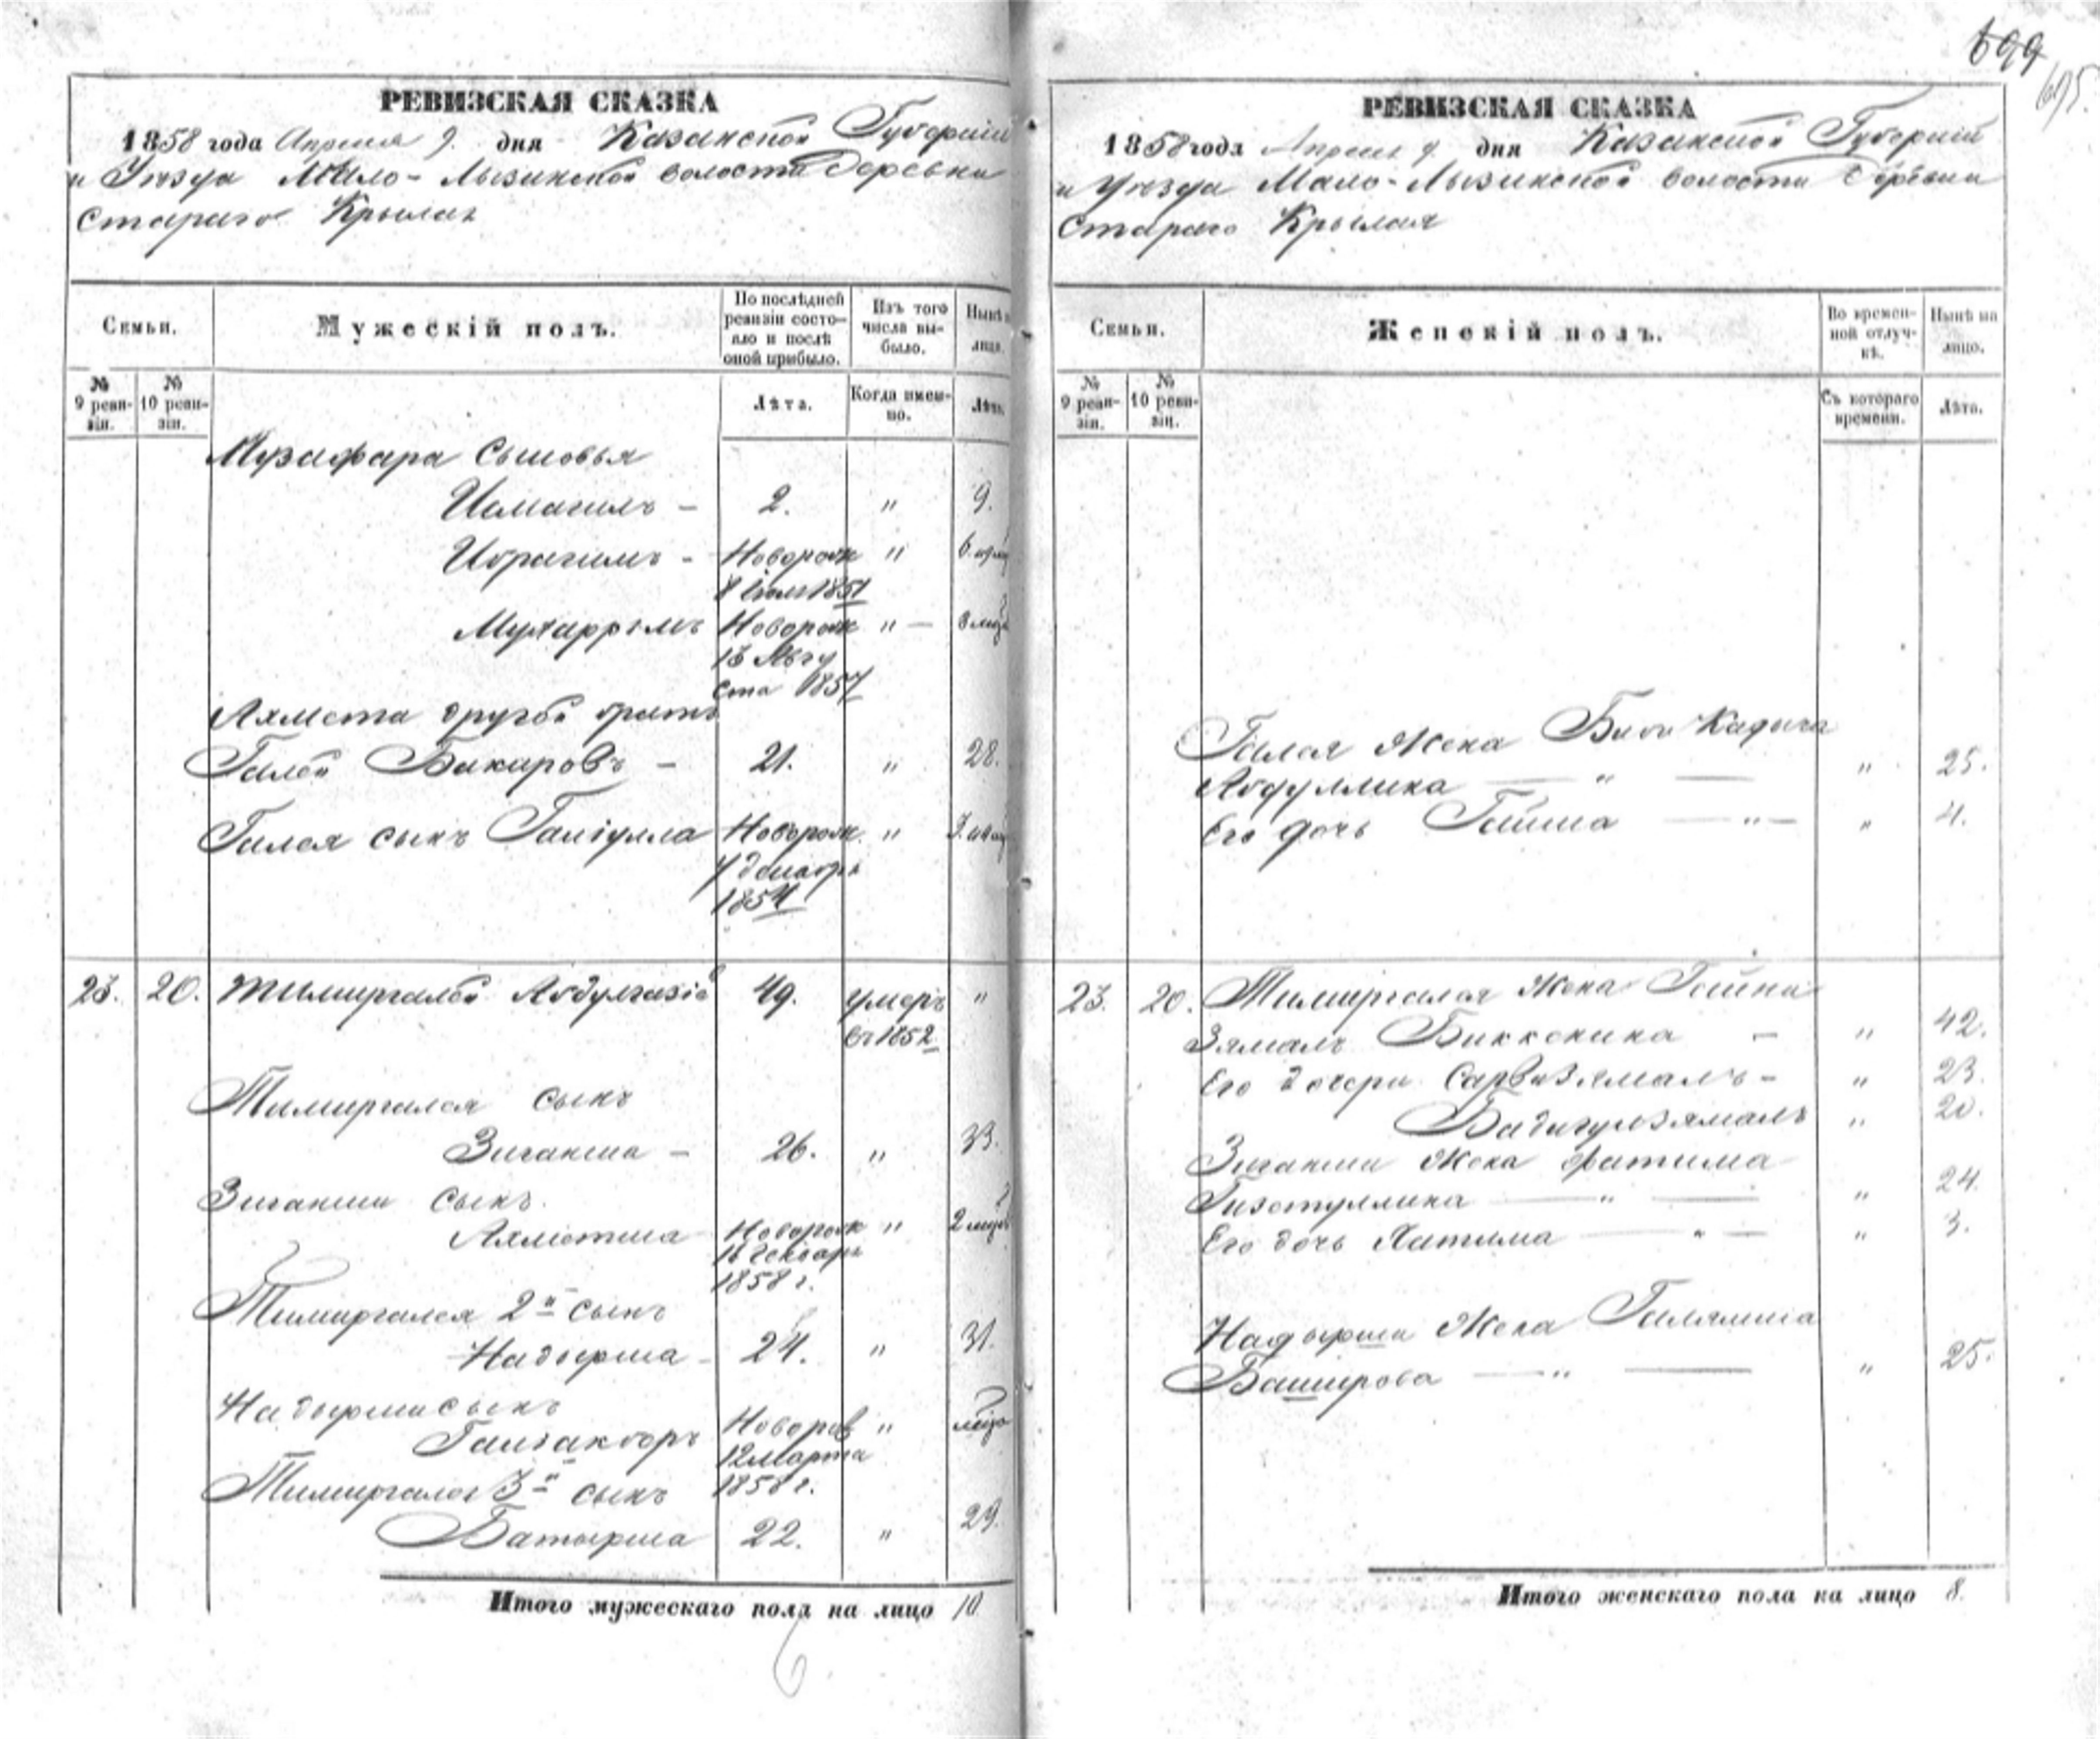 699
695.
РЕВИЗСКАЯ СКАЗКА
1858 года Апреля 9. дня Казанской Губернии
и Уезда Мало-Лызинской волости деревни
Стараго Крылая
Семьи.
Мужескій полъ.
По послѣдней ревизіи состо-яло и послѣ оной прибыло.
Изъ того числа вы-было.
Нынѣ на лицо.
№ 9 реви-зіи.
№ 10 реви-зіи.
Лѣта.
Когда имен-но.
Лѣта.
Музафара сыновья
Исмагилъ – 2. " 9.
Ибрагимъ - Новорож " 6.
8 1851
Мухаррямъ Новорож " —
13 Авгу
ста 1857
Ахмета другой братъ
Галей Бакировъ – 21. " 28.
Галея сынъ Галіулла Новорож. "
7 декабря
1854
23. 20. Тимиргалей Абдулгазіев 49. умеръ "
въ 1852
Тимиргалея сынъ
Зиганша – 26. " 33.
Зиганши сынъ.
Ахметша Новорож " 2
16 Генваря
1858 г.
Тимиргалея 2й сынъ
Надырша - 24. " 31.
Надырши сынъ
Новорож "
12 марта
Тимиргалея 3й сынъ 1858 г.
Батырша 22. " 29.
Итого мужескаго пола на лицо 10
6
РЕВИЗСКАЯ СКАЗКА
1858 года Апреля 9. дня Казанской Губерніи
и Уезда Мало-Лызинской волости деревни
Стараго Крылая
Семьи.
Женскій полъ.
Во времен-ной отлуч-кѣ.
Нынѣ на лицо.
№ 9 реви-зіи.
№ 10 реви-зіи.
Съ котораго времени.
Лѣта.
Галея жена Биби Кадыча
Абдуллина — " — " 25.
Его дочь Гайша — " — " 4.
23. 20. Тимиргалея жена Гайни
Зямалъ Биккенина – " 42.
Его дочери Сарвизямалъ - " 23.
Бадигулзямалъ " 20.
Зиганши жена Фатима
Гизетуллина — " — " 24.
Его дочь Хатима — " — " 3.
Надырши жена Галямша
Баширова — " — " 25.
Итого женскаго пола на лицо 8.